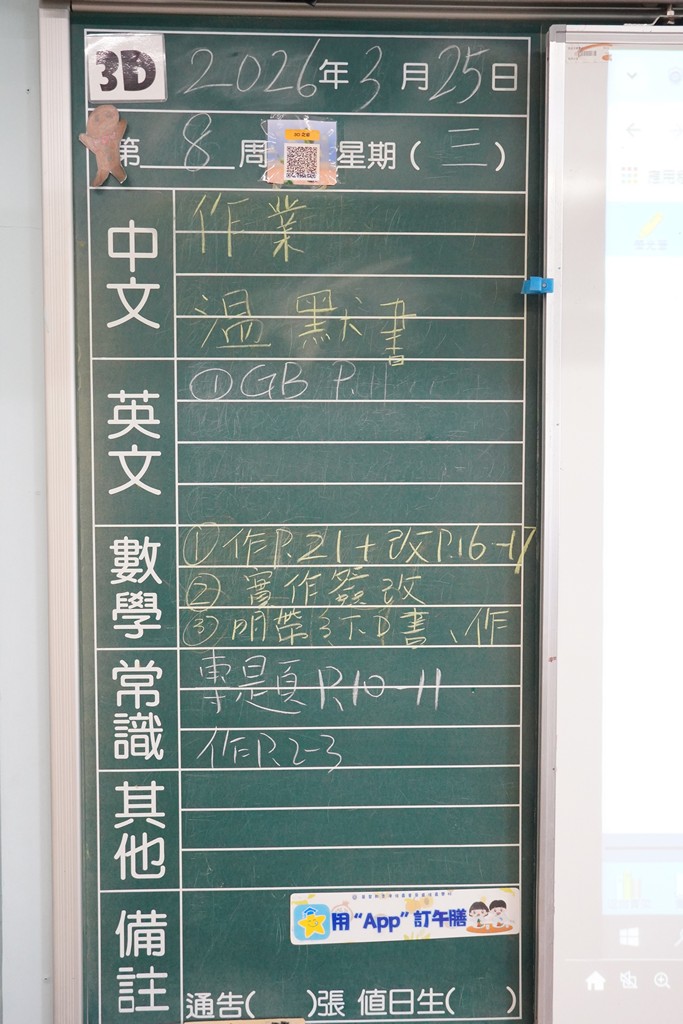 3D 2026年3月25日
第 8 周 星期(三)
中文
作業
溫默書
英文
① GB P.
數學
① 作P.21+改P.16-17
② 實作簽改
③ 明帶 書、作
常識
專題頁P.10-11
作P.2-3
其他
備註
用“App”訂午膳
通告( )張 值日生( )